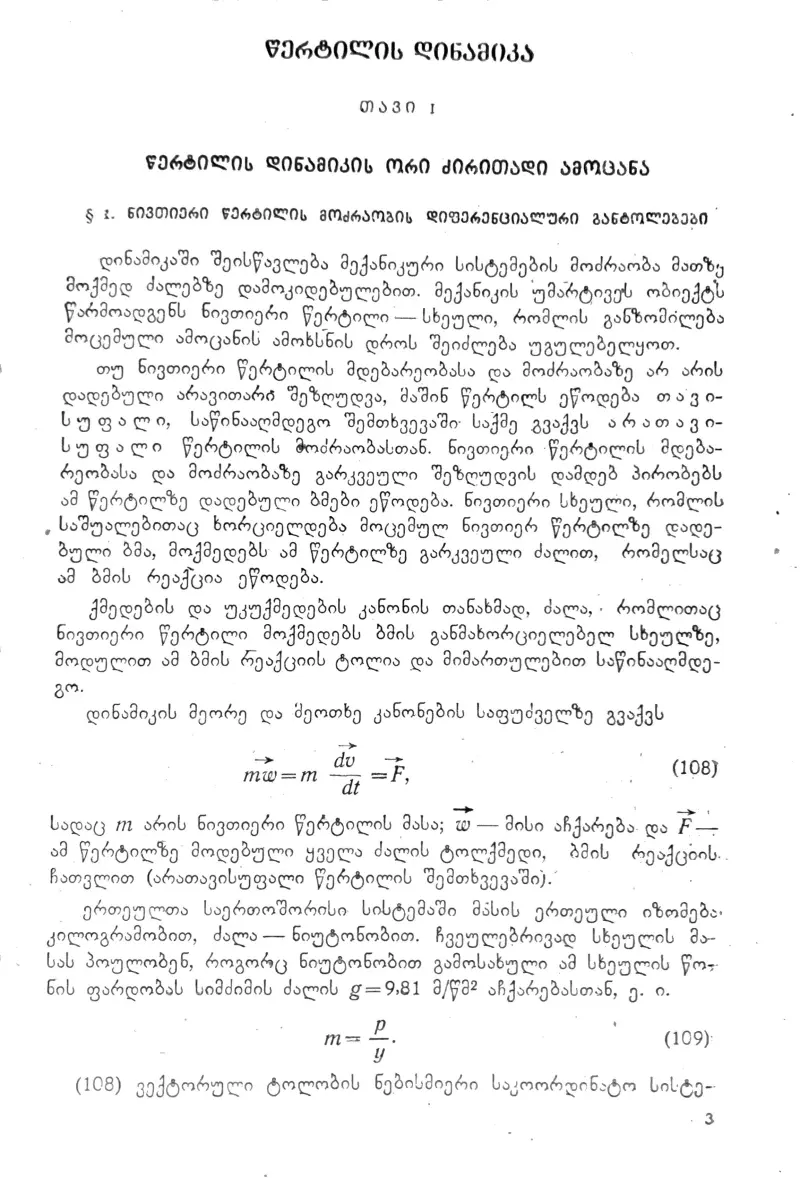 წერტილის დინამიკა
თავი I
წერტილის დინამიკის ორი ძირითადი ამოცანა
§ 1. ნივთიერი წერტილის მოძრაობის დიფერენციალური განტოლებები
დინამიკაში შეისწავლება მექანიკური სისტემების მოძრაობა მათზე
მოქმედ ძალებზე დამოკიდებულებით. მექანიკის უმარტივეს ობიექტს
წარმოადგენს ნივთიერი წერტილი — სხეული, რომლის განზომილება
მოცემული ამოცანის ამოხსნის დროს შეიძლება უგულებელყოთ.
თუ ნივთიერი წერტილის მდებარეობასა და მოძრაობაზე არ არის
დადებული არავითარი შეზღუდვა, მაშინ წერტილს ეწოდება თავი-
სუფალი, საწინააღმდეგო შემთხვევაში საქმე გვაქვს არათავი-
სუფალი წერტილის მოძრაობასთან. ნივთიერი წერტილის მდება-
რეობასა და მოძრაობაზე გარკვეული შეზღუდვის დამდებ პირობებს
ამ წერტილზე დადებული ბმები ეწოდება. ნივთიერი სხეული, რომლის
საშუალებითაც ხორციელდება მოცემულ ნივთიერ წერტილზე დადე-
ბული ბმა, მოქმედებს ამ წერტილზე გარკვეული ძალით, რომელსაც
ამ ბმის რეაქცია ეწოდება.
ქმედების და უკუქმედების კანონის თანახმად, ძალა, რომლითაც
ნივთიერი წერტილი მოქმედებს ბმის განმახორციელებელ სხეულზე,
მოდულით ამ ბმის რეაქციის ტოლია და მიმართულებით საწინააღმდე-
გო.
დინამიკის მეორე და მეოთხე კანონების საფუძველზე გვაქვს
m\vec{w} = m \frac{d\vec{v}}{dt} = \vec{F}, (108)
სადაც m არის ნივთიერი წერტილის მასა; \vec{w} — მისი აჩქარება და \vec{F} —
ამ წერტილზე მოდებული ყველა ძალის ტოლქმედი, ბმის რეაქციის
ჩათვლით (არათავისუფალი წერტილის შემთხვევაში).
ერთეულთა საერთოშორისო სისტემაში მასის ერთეული იზომება
კილოგრამობით, ძალა — ნიუტონობით. ჩვეულებრივად სხეულის მა-
სას პოულობენ, როგორც ნიუტონობით გამოსახული ამ სხეულის წო-
ნის ფარდობას სიმძიმის ძალის g=9,81 მ/წმ² აჩქარებასთან, ე. ი.
m = \frac{p}{y}. (109)
(108) ვექტორული ტოლობის ნებისმიერი საკოორდინატო სისტე-
3